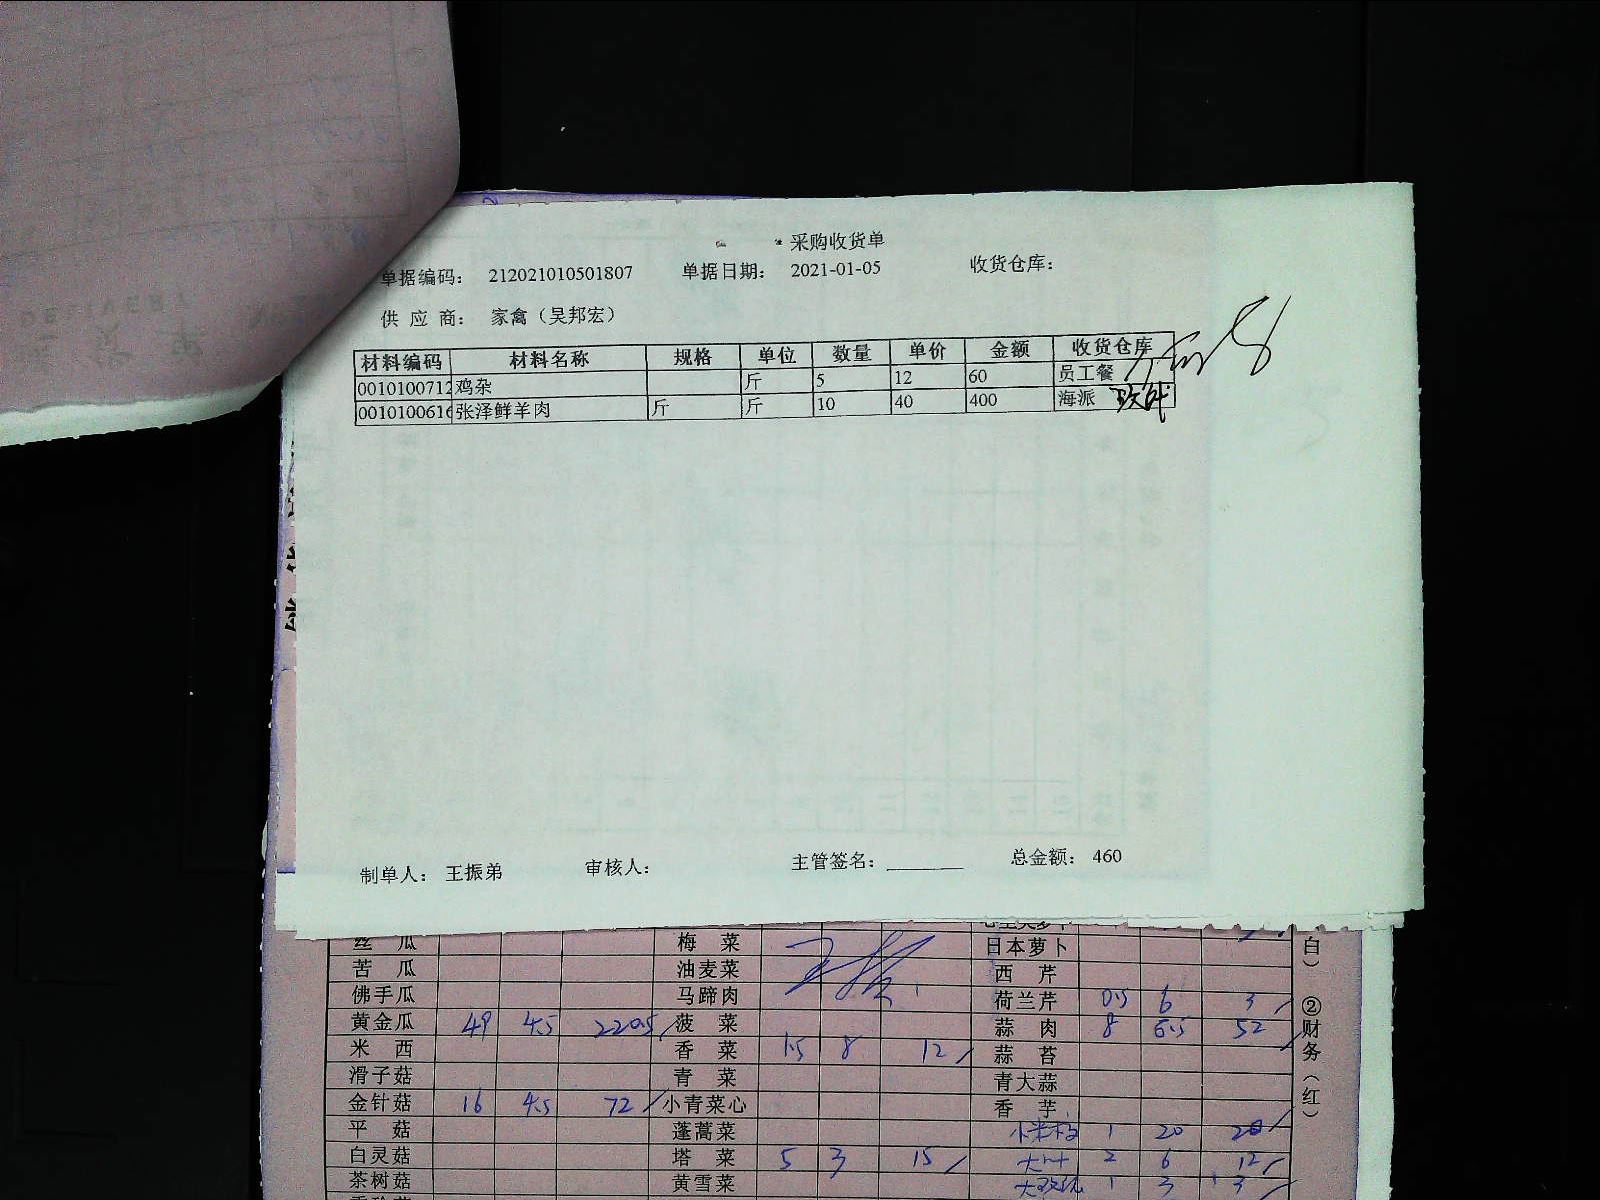 采购收货单
单据编码： 212021010501807 单据日期： 2021-01-05 收货仓库：
供 应 商： 家禽（吴邦宏）
材料编码 材料名称 规格 单位 数量 单价 金额 收货仓库
0010100712 鸡杂 斤 5 12 60 员工餐
0010100616 张泽鲜羊肉 斤 斤 10 40 400 海派
制单人： 王振弟 审核人： 主管签名： 总金额： 460
丝 瓜 梅 菜 日本萝卜
苦 瓜 油麦菜 西 芹
佛手瓜 马蹄肉 荷兰芹 0.5 6 3
黄金瓜 49 4.5 220.5 菠 菜 蒜 肉 8 6.5 52
米 西 香 菜 1.5 8 12 蒜 苔
滑子菇 青 菜 青大蒜
金针菇 16 4.5 72 小青菜心 香 芋
平 菇 蓬蒿菜 1 20 20
白灵菇 塔 菜 5 3 15 大叶 2 6 12
茶树菇 黄雪菜 1 3 3
白） ②财务（红）